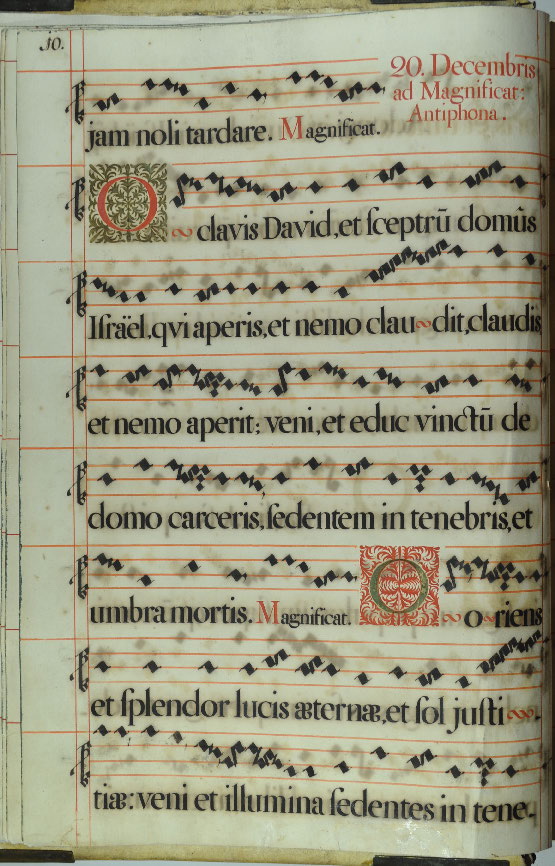 10.
20. Decembris
ad Magnificat:
Antiphona.
jam noli tardare. Magnificat.
O clavis David, et ſceptrū domûs
Iſraël, qvi aperis, et nemo clau~dit, claudis
et nemo aperit; veni, et educ vinctū de
domo carceris, ſedentem in tenebris, et
umbra mortis. Magnificat. O ~ o~riens
et ſplendor lucis æternæ, et ſol juſti~.
tiæ: veni et illumina ſedentes in tene-